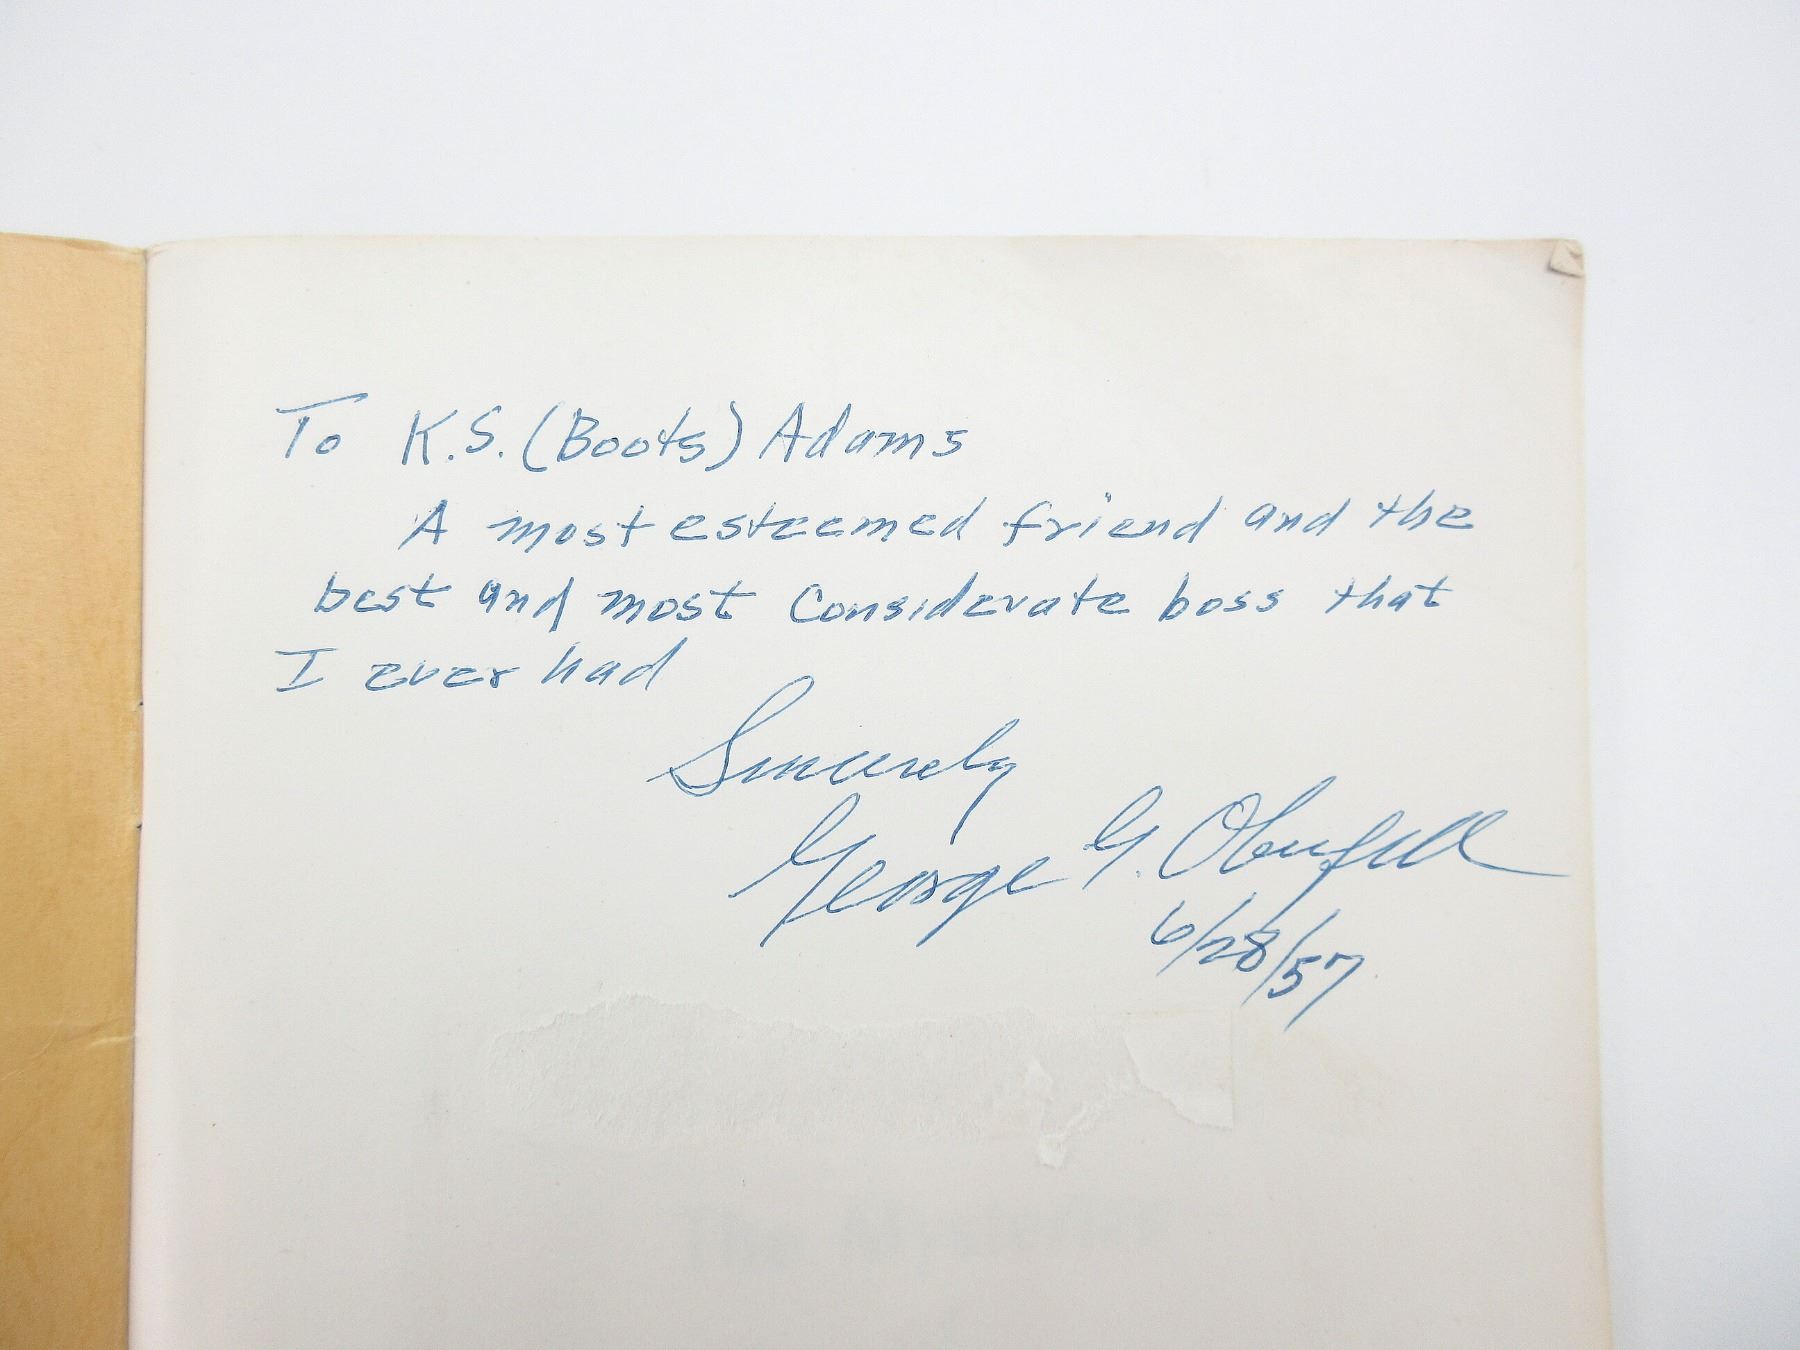 To K.S. (Boots) Adams
A most esteemed friend and the
best and most Considerate boss that
I ever had
Sincerely
George G. Oberfell
6/28/57